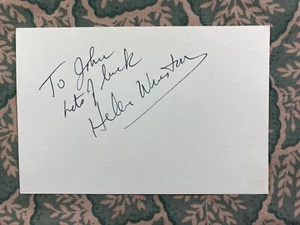 To John
lots of luck
Helen Winston